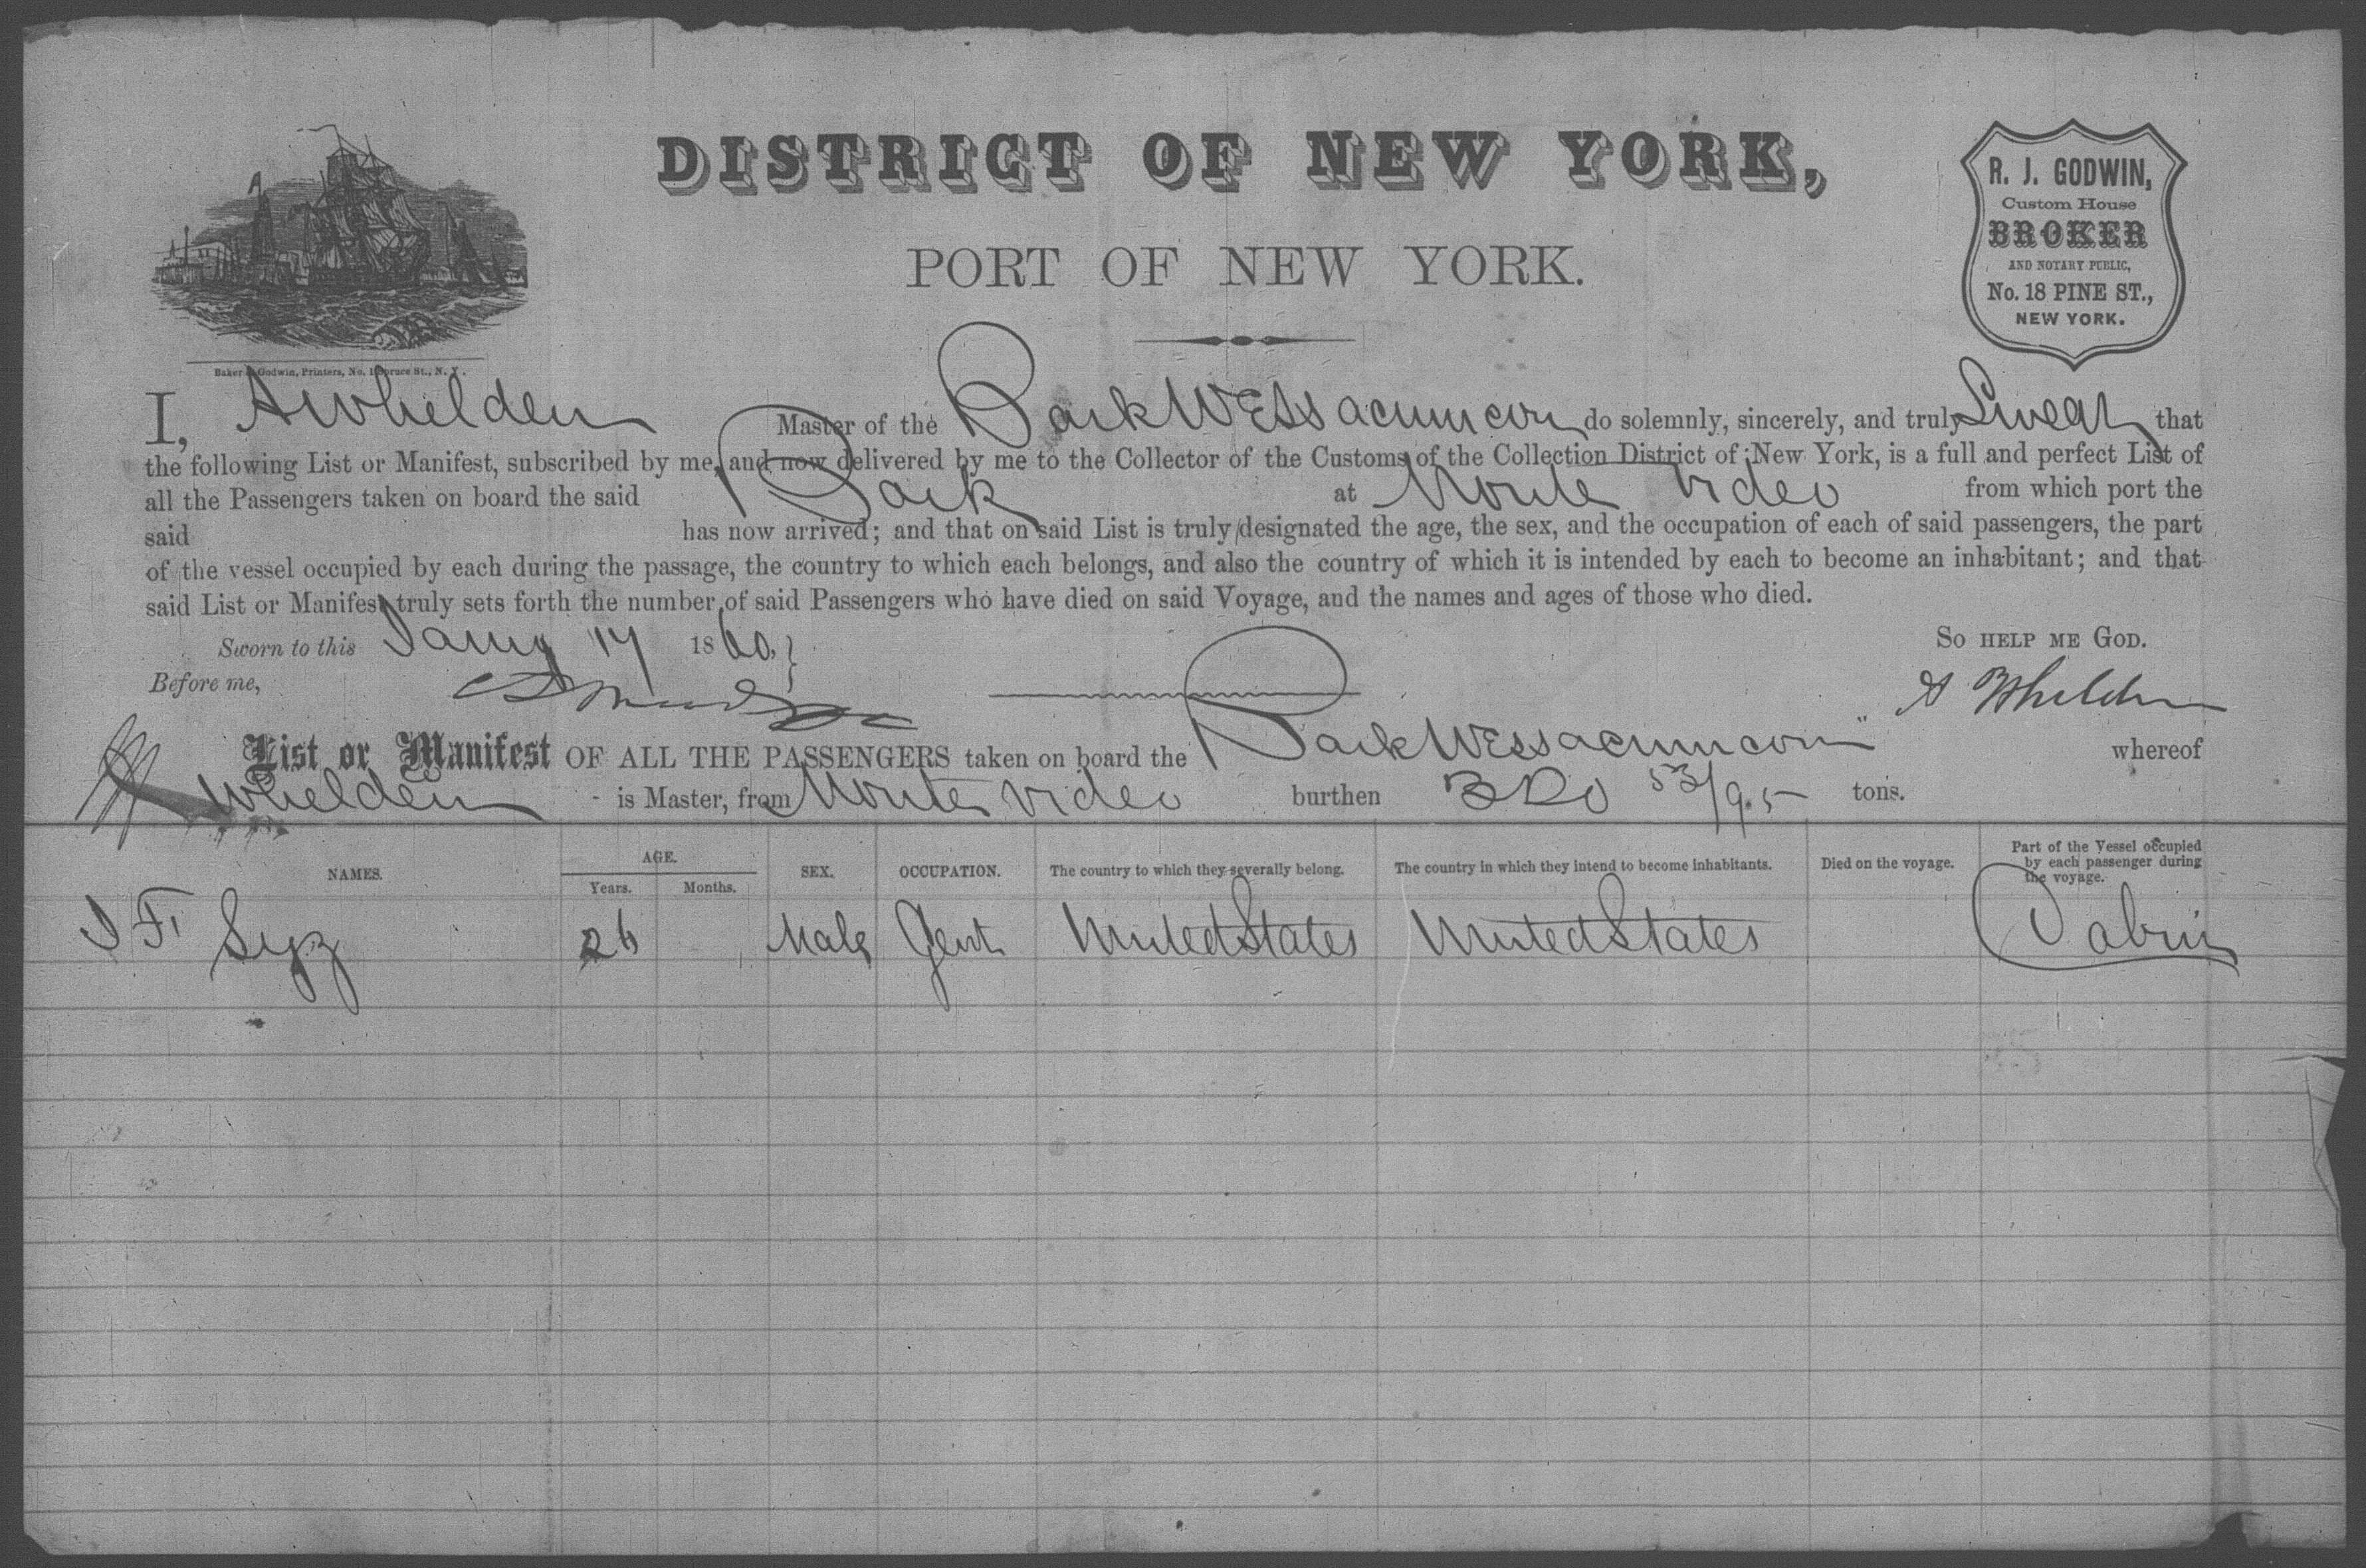 DISTRICT OF NEW YORK,
PORT OF NEW YORK.
R. J. GODWIN,
Custom House
BROKER
AND NOTARY PUBLIC,
No. 18 PINE ST.,
NEW YORK.
Baker & Godwin, Printers, No. 1 Spruce St., N. Y.
I, A Whelden Master of the Bark Wessacumcon do solemnly, sincerely, and truly Swear that
the following List or Manifest, subscribed by me, and now delivered by me to the Collector of the Customs of the Collection District of New York, is a full and perfect List of
all the Passengers taken on board the said Bark at Monte Video from which port the
said has now arrived; and that on said List is truly designated the age, the sex, and the occupation of each of said passengers, the part
of the vessel occupied by each during the passage, the country to which each belongs, and also the country of which it is intended by each to become an inhabitant; and that
said List or Manifest truly sets forth the number of said Passengers who have died on said Voyage, and the names and ages of those who died.
Sworn to this Jany 17 1860, } So HELP ME GOD.
Before me, A Whelden
List or Manifest OF ALL THE PASSENGERS taken on board the Bark Wessacumcon" whereof
Whelden is Master, from Monte Video burthen 53/95 tons.
NAMES. AGE. Years. Months. SEX. OCCUPATION. The country to which they severally belong. The country in which they intend to become inhabitants. Died on the voyage. Part of the Vessel occupied by each passenger during the voyage.
J F 26 Male Gent United States United States Cabin